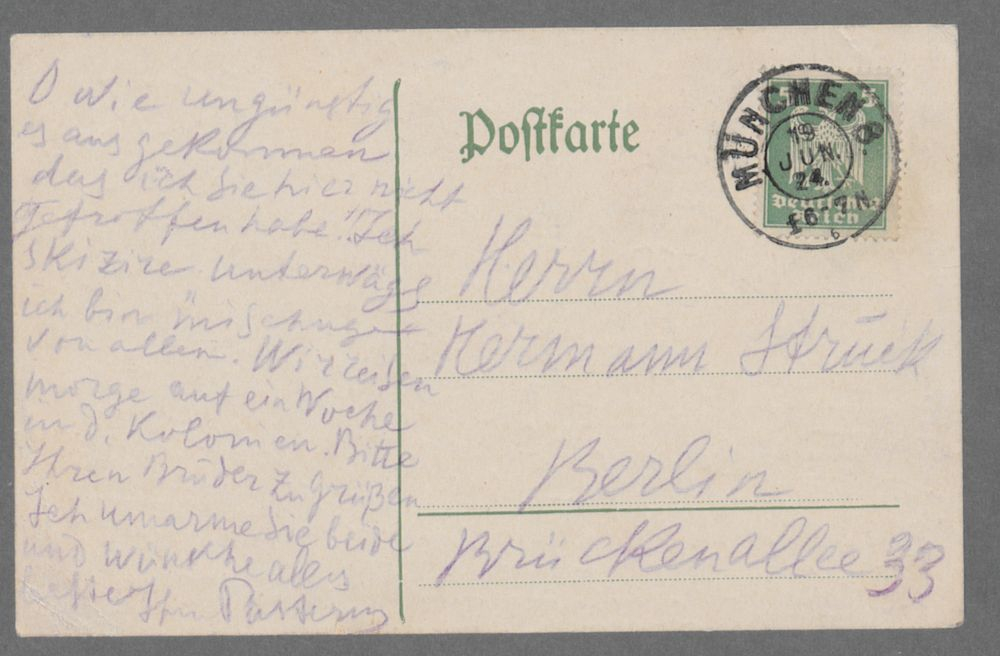 O wie ungünstig
es ausgekommen
das ich Sie hier nicht
getroffen habe! Ich
skizire unterwägs
ich bin
von allem. Wir reisen
morge auf ein Woche
in d. Kolonien. Bitte
Ihren Brüder zu grüßen
Ich umarme Sie beide
und wünsche alles
beste Ihr Pasternak
Postkarte
MÜNCHEN 8.
19.
JUN.
24.
6-7 N
5
Deutsches
Reich
Herrn
Hermann Struck
Berlin
Brückenallee 33